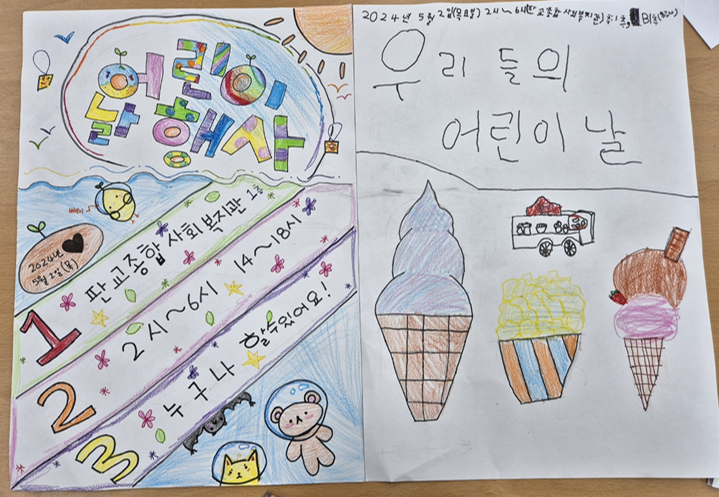 어린이
날 행사
2024년
5월 2일(목)
1 판교종합 사회복지관 1층
2 2시~6시 14~18시
3 누구나 할수있어요!
2024년 5월 2일(목요일) 2시~6시(판교종합사회복지관)
우리 들의
어린이 날